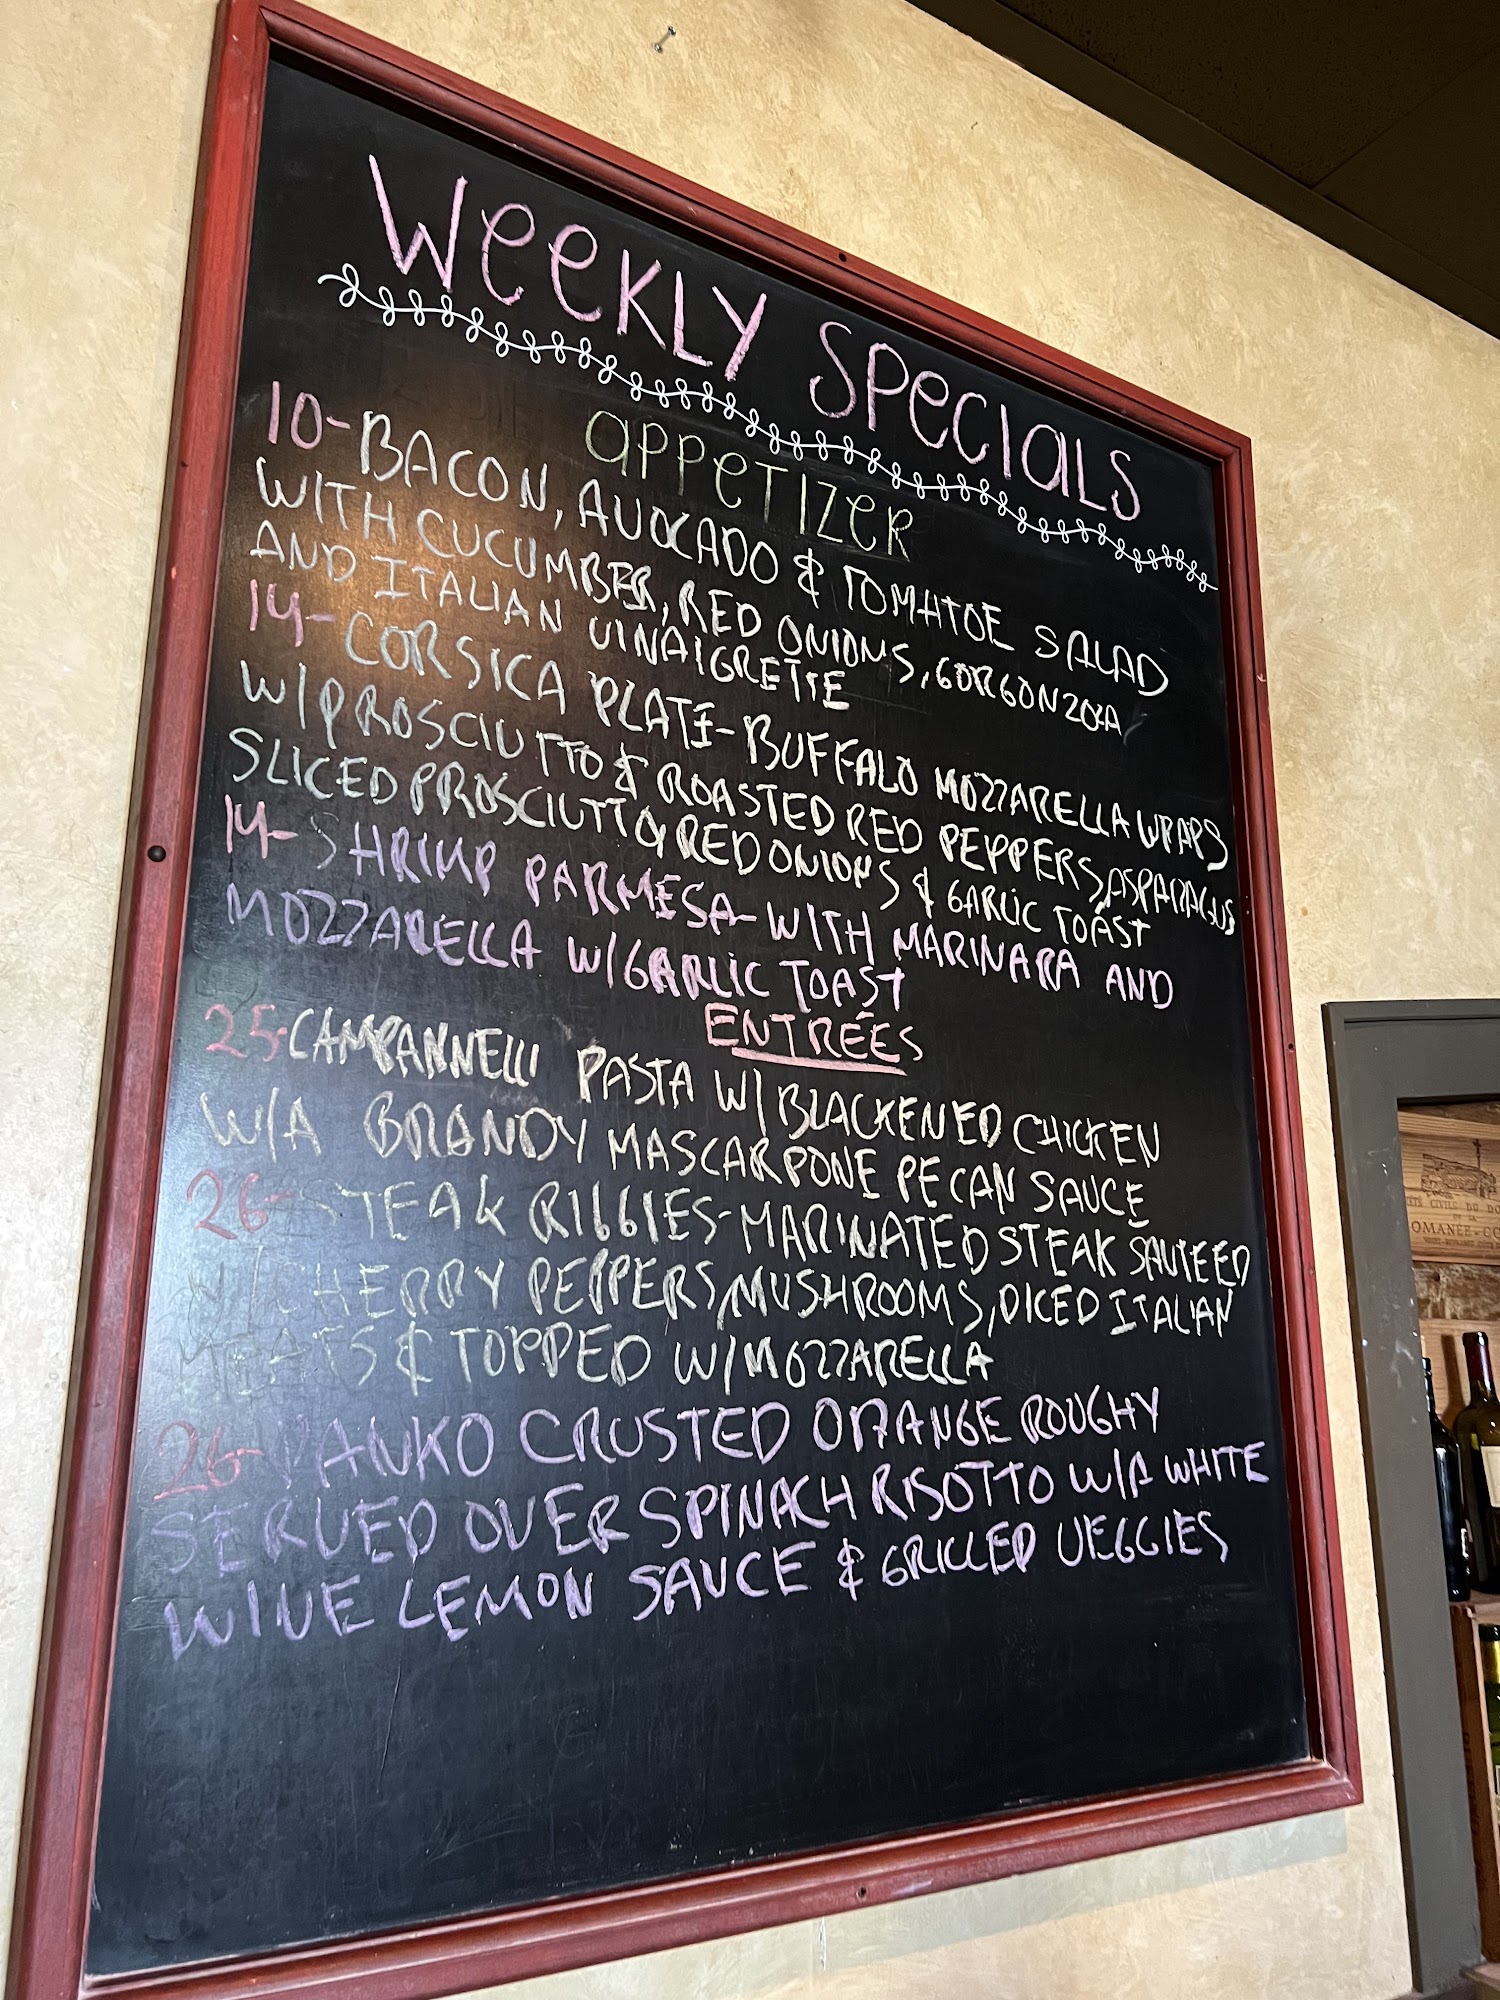 Weekly Specials
appetizer
10-BACON, AVOCADO & TOMATOE SALAD
WITH CUCUMBER, RED ONIONS, GORGONZOLA
AND ITALIAN VINAIGRETTE
14-CORSICA PLATE-BUFFALO MOZZARELLA WRAPS
W/PROSCIUTTO & ROASTED RED PEPPERS, ASPARAGUS
SLICED PROSCIUTTO, RED ONIONS & GARLIC TOAST
14-SHRIMP PARMESA-WITH MARINARA AND
MOZZARELLA W/GARLIC TOAST
ENTRÉES
25-CAMPANNELLI PASTA W/BLACKENED CHICKEN
W/A BRANDY MASCARPONE PECAN SAUCE
26-STEAK RIGGIES-MARINATED STEAK SAUTEED
W/CHERRY PEPPERS, MUSHROOMS, DICED ITALIAN
MEATS & TOPPED W/MOZZARELLA
26-PANKO CRUSTED ORANGE ROUGHY
SERVED OVER SPINACH RISOTTO W/A WHITE
WINE LEMON SAUCE & GRILLED VEGGIES